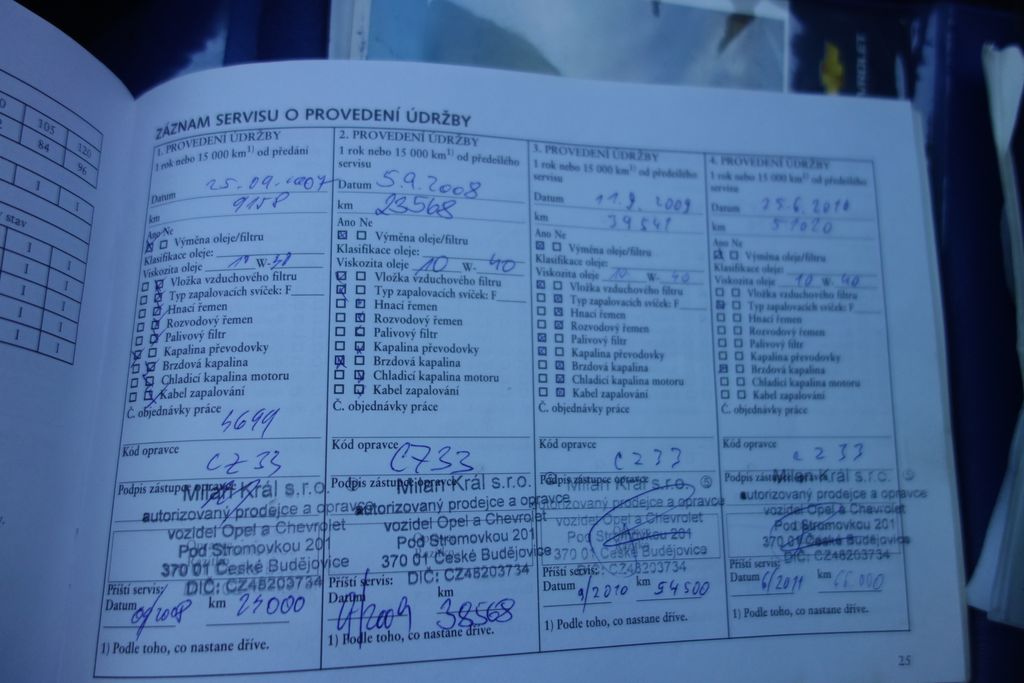 105
120
84
96
stav
I
I
I
I
I
I
I
I
I
I
ZÁZNAM SERVISU O PROVEDENÍ ÚDRŽBY
1. PROVEDENÍ ÚDRŽBY
1 rok nebo 15 000 km1) od předání
Datum 25.09.2007
km 9158
Ano Ne
Výměna oleje/filtru
Klasifikace oleje:
Viskozita oleje 10 W-30
Vložka vzduchového filtru
Typ zapalovacích svíček: F
Hnací řemen
Rozvodový řemen
Palivový filtr
Kapalina převodovky
Brzdová kapalina
Chladicí kapalina motoru
Kabel zapalování
Č. objednávky práce
Kód opravce
CZ33
Podpis zástupce opravce
Milan Král s.r.o.
autorizovaný prodejce a opravce
vozidel Opel a Chevrolet
Pod Stromovkou 201
370 01 České Budějovice
DIČ: CZ48203734
Příští servis:
Datum 9/2008 km 23000
1) Podle toho, co nastane dříve.
2. PROVEDENÍ ÚDRŽBY
1 rok nebo 15 000 km1) od předešlého
servisu
Datum 5.9.2008
km 23568
Ano Ne
Výměna oleje/filtru
Klasifikace oleje:
Viskozita oleje 10 W- 40
Vložka vzduchového filtru
Typ zapalovacích svíček: F
Hnací řemen
Rozvodový řemen
Palivový filtr
Kapalina převodovky
Brzdová kapalina
Chladicí kapalina motoru
Kabel zapalování
Č. objednávky práce
Kód opravce
CZ33
Podpis zástupce opravce
Milan Král s.r.o.
autorizovaný prodejce a opravce
vozidel Opel a Chevrolet
Pod Stromovkou 201
370 01 České Budějovice
DIČ: CZ48203734
Příští servis:
Datum 9/2009 km 38568
1) Podle toho, co nastane dříve.
3. PROVEDENÍ ÚDRŽBY
1 rok nebo 15 000 km1) od předešlého
servisu
Datum 11.9.2009
km 39541
Ano Ne
Výměna oleje/filtru
Klasifikace oleje:
Viskozita oleje 10 W- 40
Vložka vzduchového filtru
Typ zapalovacích svíček: F
Hnací řemen
Rozvodový řemen
Palivový filtr
Kapalina převodovky
Brzdová kapalina
Chladicí kapalina motoru
Kabel zapalování
Č. objednávky práce
Kód opravce
CZ33
Podpis zástupce opravce
Milan Král s.r.o. 5
autorizovaný prodejce a opravce
vozidel Opel a Chevrolet
Pod Stromovkou 201
370 01 České Budějovice
DIČ: CZ48203734
Příští servis:
Datum 9/2010 km 54500
1) Podle toho, co nastane dříve.
4. PROVEDENÍ ÚDRŽBY
1 rok nebo 15 000 km1) od předešlého
servisu
Datum 25.6.2010
km 51020
Ano Ne
Výměna oleje/filtru
Klasifikace oleje:
Viskozita oleje 10 W- 40
Vložka vzduchového filtru
Typ zapalovacích svíček: F
Hnací řemen
Rozvodový řemen
Palivový filtr
Kapalina převodovky
Brzdová kapalina
Chladicí kapalina motoru
Kabel zapalování
Č. objednávky práce
Kód opravce
CZ33
Podpis zástupce opravce
Milan Král s.r.o. 5
autorizovaný prodejce a opravce
vozidel Opel a Chevrolet
Pod Stromovkou 201
370 01 České Budějovice
DIČ: CZ48203734
Příští servis:
Datum 6/2011 km 66 000
1) Podle toho, co nastane dříve.
25